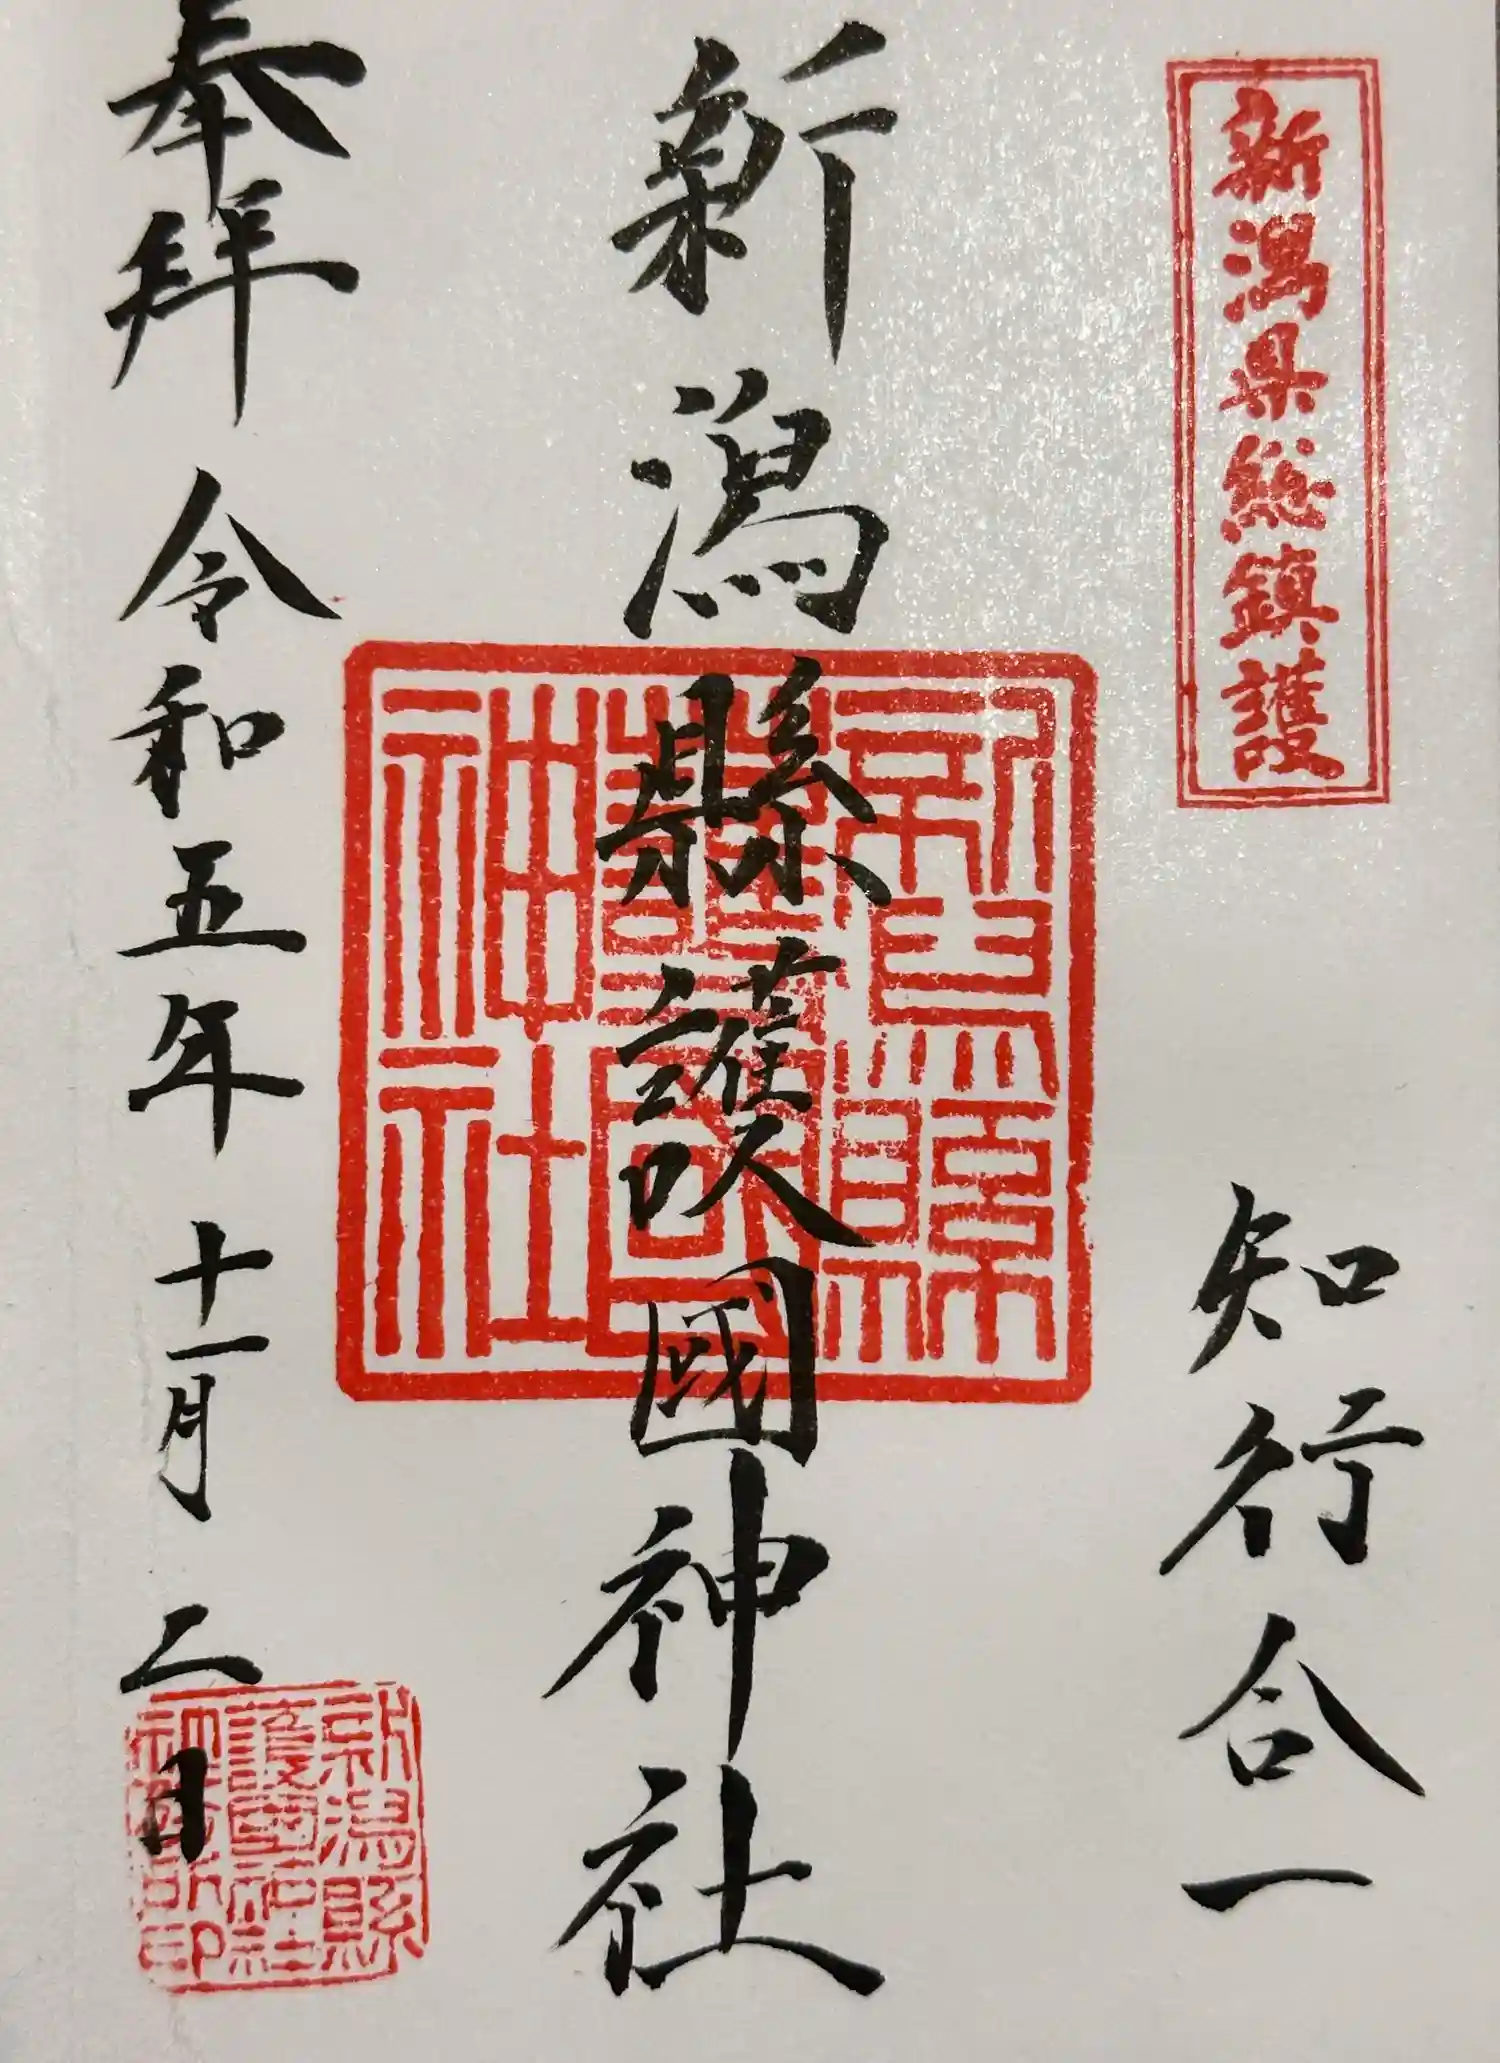 新潟県総鎮護
知行合一
新潟縣護國神社
新潟縣
護國
神社
奉拝 令和五年 十一月 二日
新潟縣
護國神社
印